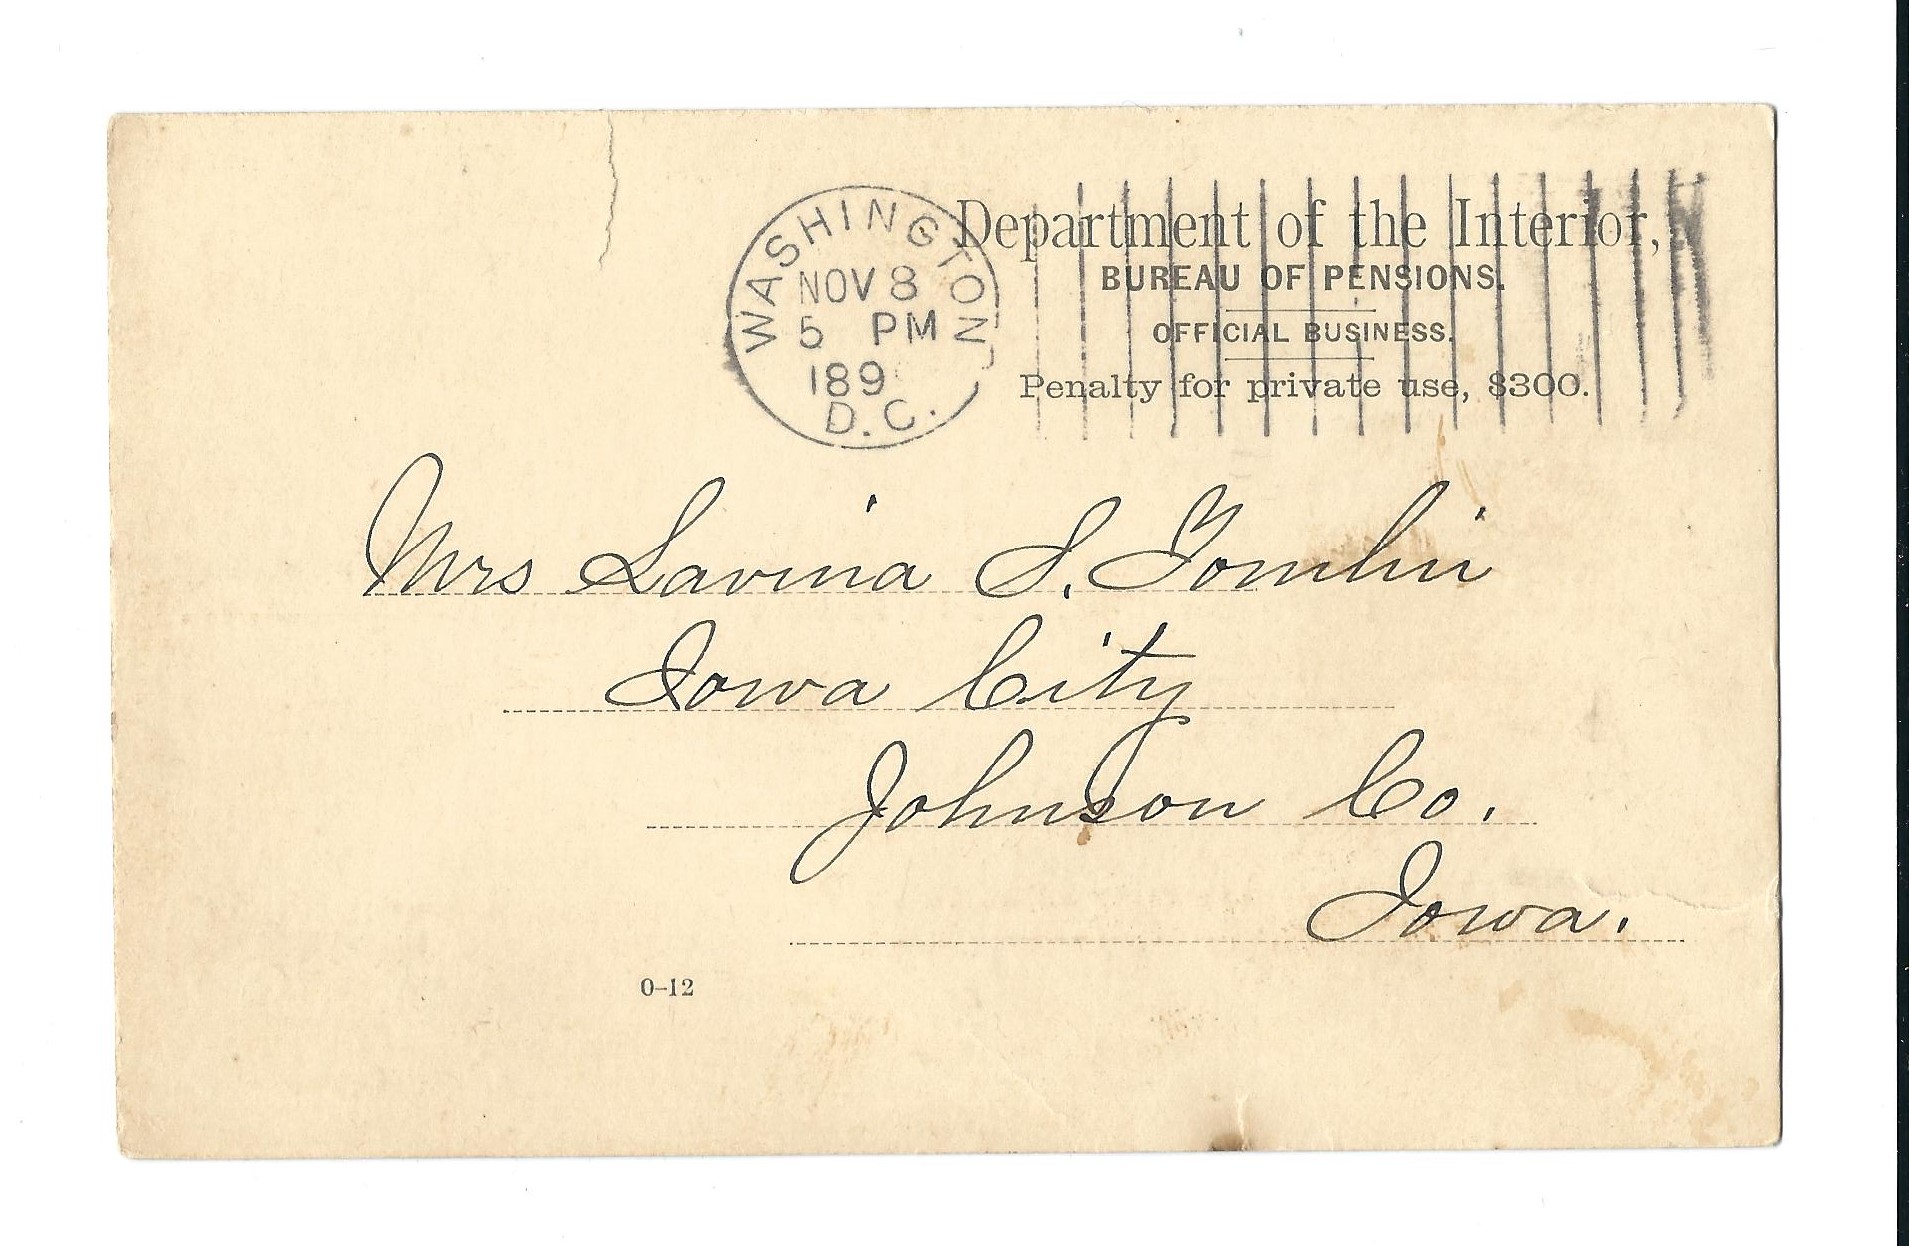 WASHINGTON
NOV 8
5 PM
189
D.C.
Department of the Interior,
BUREAU OF PENSIONS.
OFFICIAL BUSINESS.
Penalty for private use, $300.
Mrs Lavina S. Tomlin
Iowa City
Johnson Co.
Iowa.
0-12